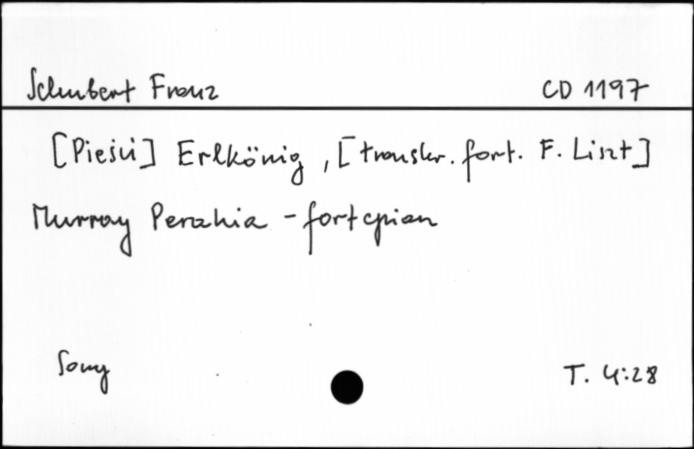 Schubert Franz CD 1197
[Pieśni] Erlkönig, [transkr. fort. F. Liszt]
Murray Perahia - fortepian
Sony T. 4:28